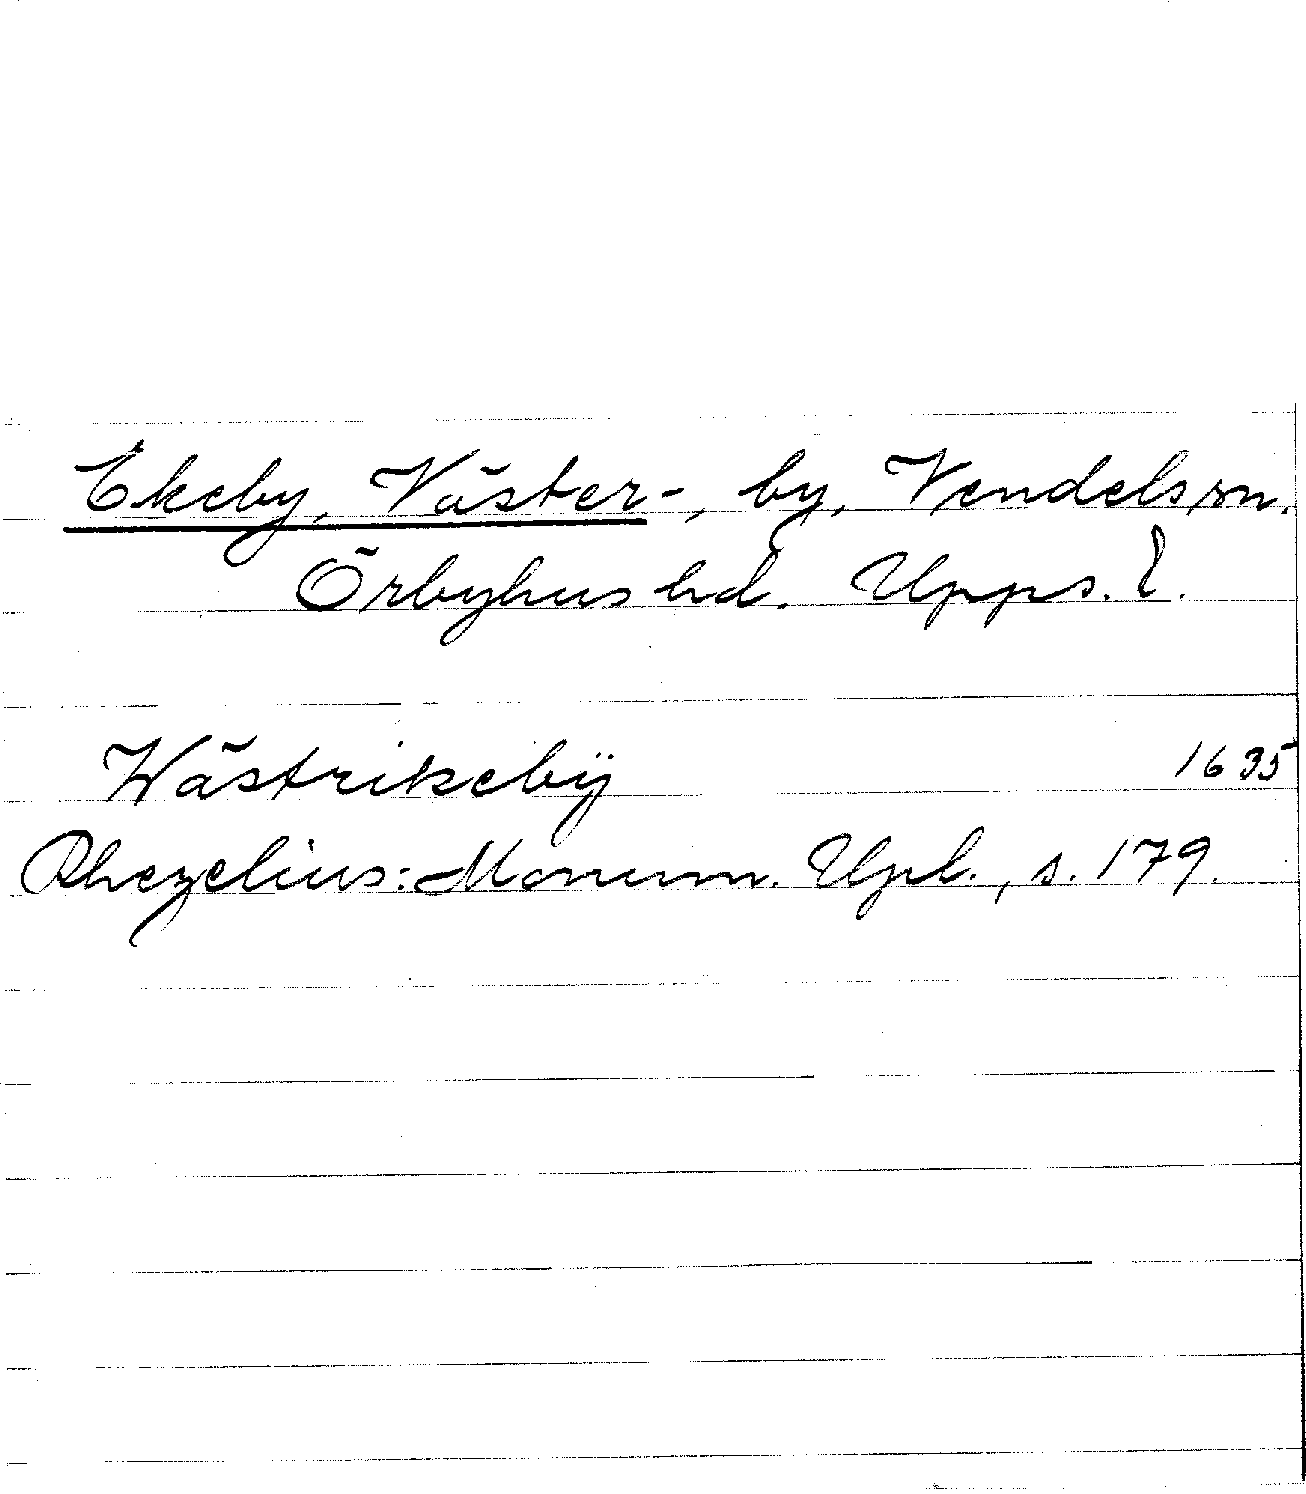 Ekeby, Väster-, by, Vendels sn.
Örbyhus hd. Upps. l.
Wästrikebÿ 1635
Rhezelius: Monum. Upl., s. 179.